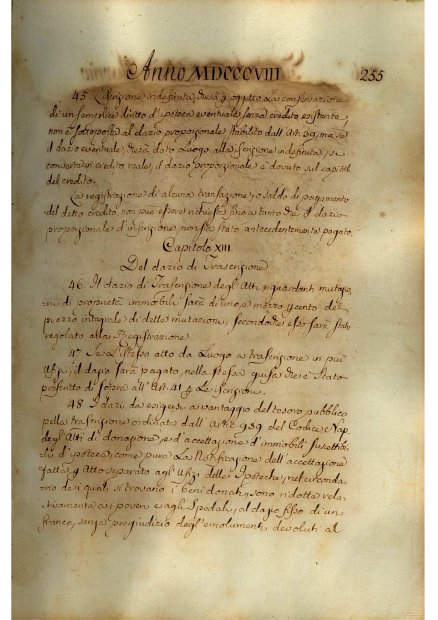 Anno MDCCCVIII 255
45. L'Iscrizione indefinita, che à p oggetto La conservazione
di un semplice diritto d'ipoteca eventuale senza credito esistente
non è sottoposta al dazio proporzionale stabilito dall'Art. 39, ma se
il dazio eventuale, che à dato Luogo alla Iscrizione indefinita, si
converte in credito reale, il dazio proporzionale è dovuto sul capital
del credito.
La registrazione di alcuna tranlazione, o saldo di pagamento
del detto credito, non può essere richiesta fino a tanto che il dazio
proporzionale d'inscrizione non sia stato antecedentemente pagato.
Capitolo XIII.
Del dazio di Trascrizione
46. Il dazio di Trascrizione degl'Atti riguardanti mutazio
ni di proprietà immobili sarà di uno, e mezzo p cento del
prezzo integrale di dette mutazioni, secondo che esso sarà stato
regolato alla Registrazione.
47. Se L'istesso atto dà Luogo a trascrizione in più
Ufizi, il dazio sarà pagato, nella stessa guisa che è stato
prescritto di sopra all'Art. 41 p Le iscrizioni.
48. I dazi da esigersi a vantaggio del tesoro pubblico
pella trascrizione ordinata dall'Artic. 939 del Codice Nap.
degl'Atti di donazione, e d'accettazione d'immobili suscettibi
li d'ipoteca, come pure La Notificazione dell'accettazione
fatta p Atto separato agl'Ufizi delle Ipoteche, nel circonda
rio de i quali si trovano i beni donati, sono ridotte rela
tivamente ai poveri e agli Spedali, al dazio fisso di un
franco, senza pregiudizio degl'emolumenti devoluti al